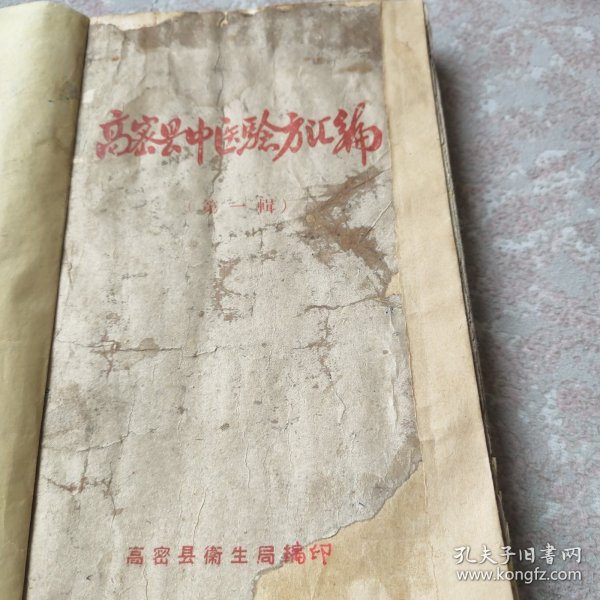 高密县中医验方汇编
（第一輯）
高密县衛生局編印
孔夫子旧書网
www.kongfz.com